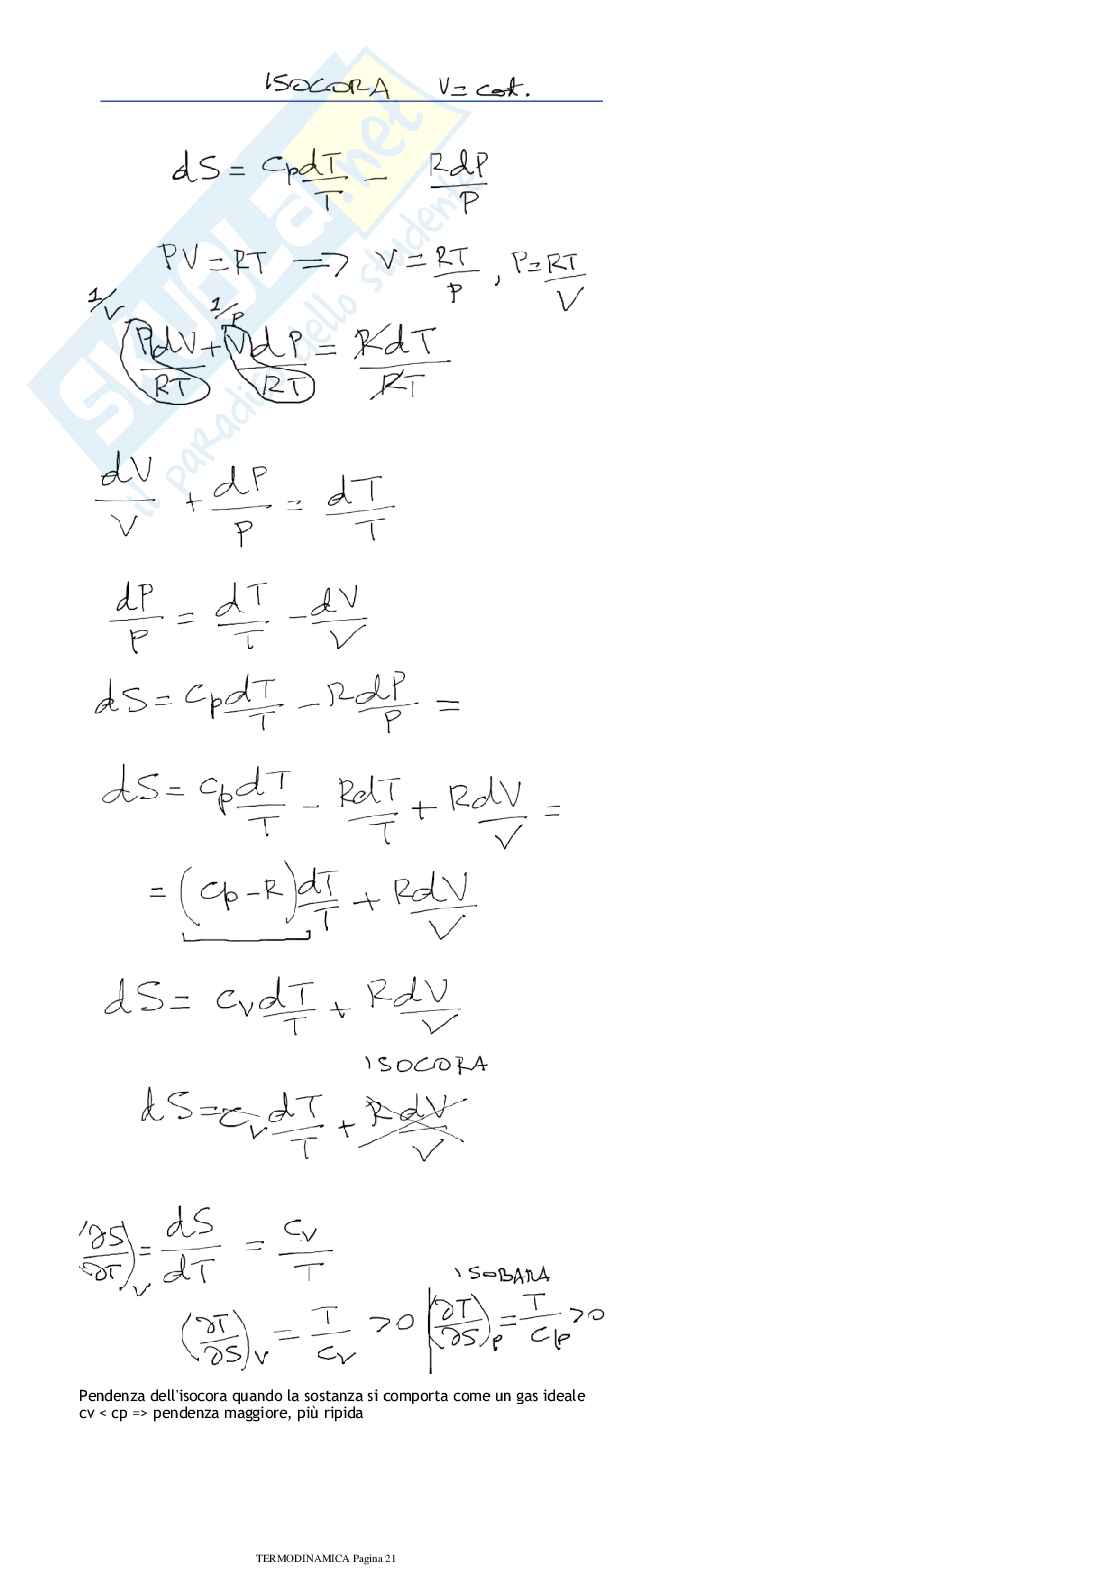 ISOCORA V = cost.
dS = CpdT/T - RdP/P
PV = RT => V = RT/P , P = RT/V
1/V 1/P
PdV/RT + VdP/RT = RdT/RT
dV/V + dP/P = dT/T
dP/P = dT/T - dV/V
dS = CpdT/T - RdP/P =
dS = CpdT/T - RdT/T + RdV/V =
= (Cp - R)dT/T + RdV/V
dS = CvdT/T + RdV/V
ISOCORA
dS = CvdT/T + RdV/V
(∂S/∂T)v = dS/dT = Cv/T
ISOBARA
(∂T/∂S)v = T/Cv >0 | (∂T/∂S)p = T/Cp >0
Pendenza dell'isocora quando la sostanza si comporta come un gas ideale
cv < cp => pendenza maggiore, più ripida
TERMODINAMICA Pagina 21
SKUOLA.net
il paradiso dello studente